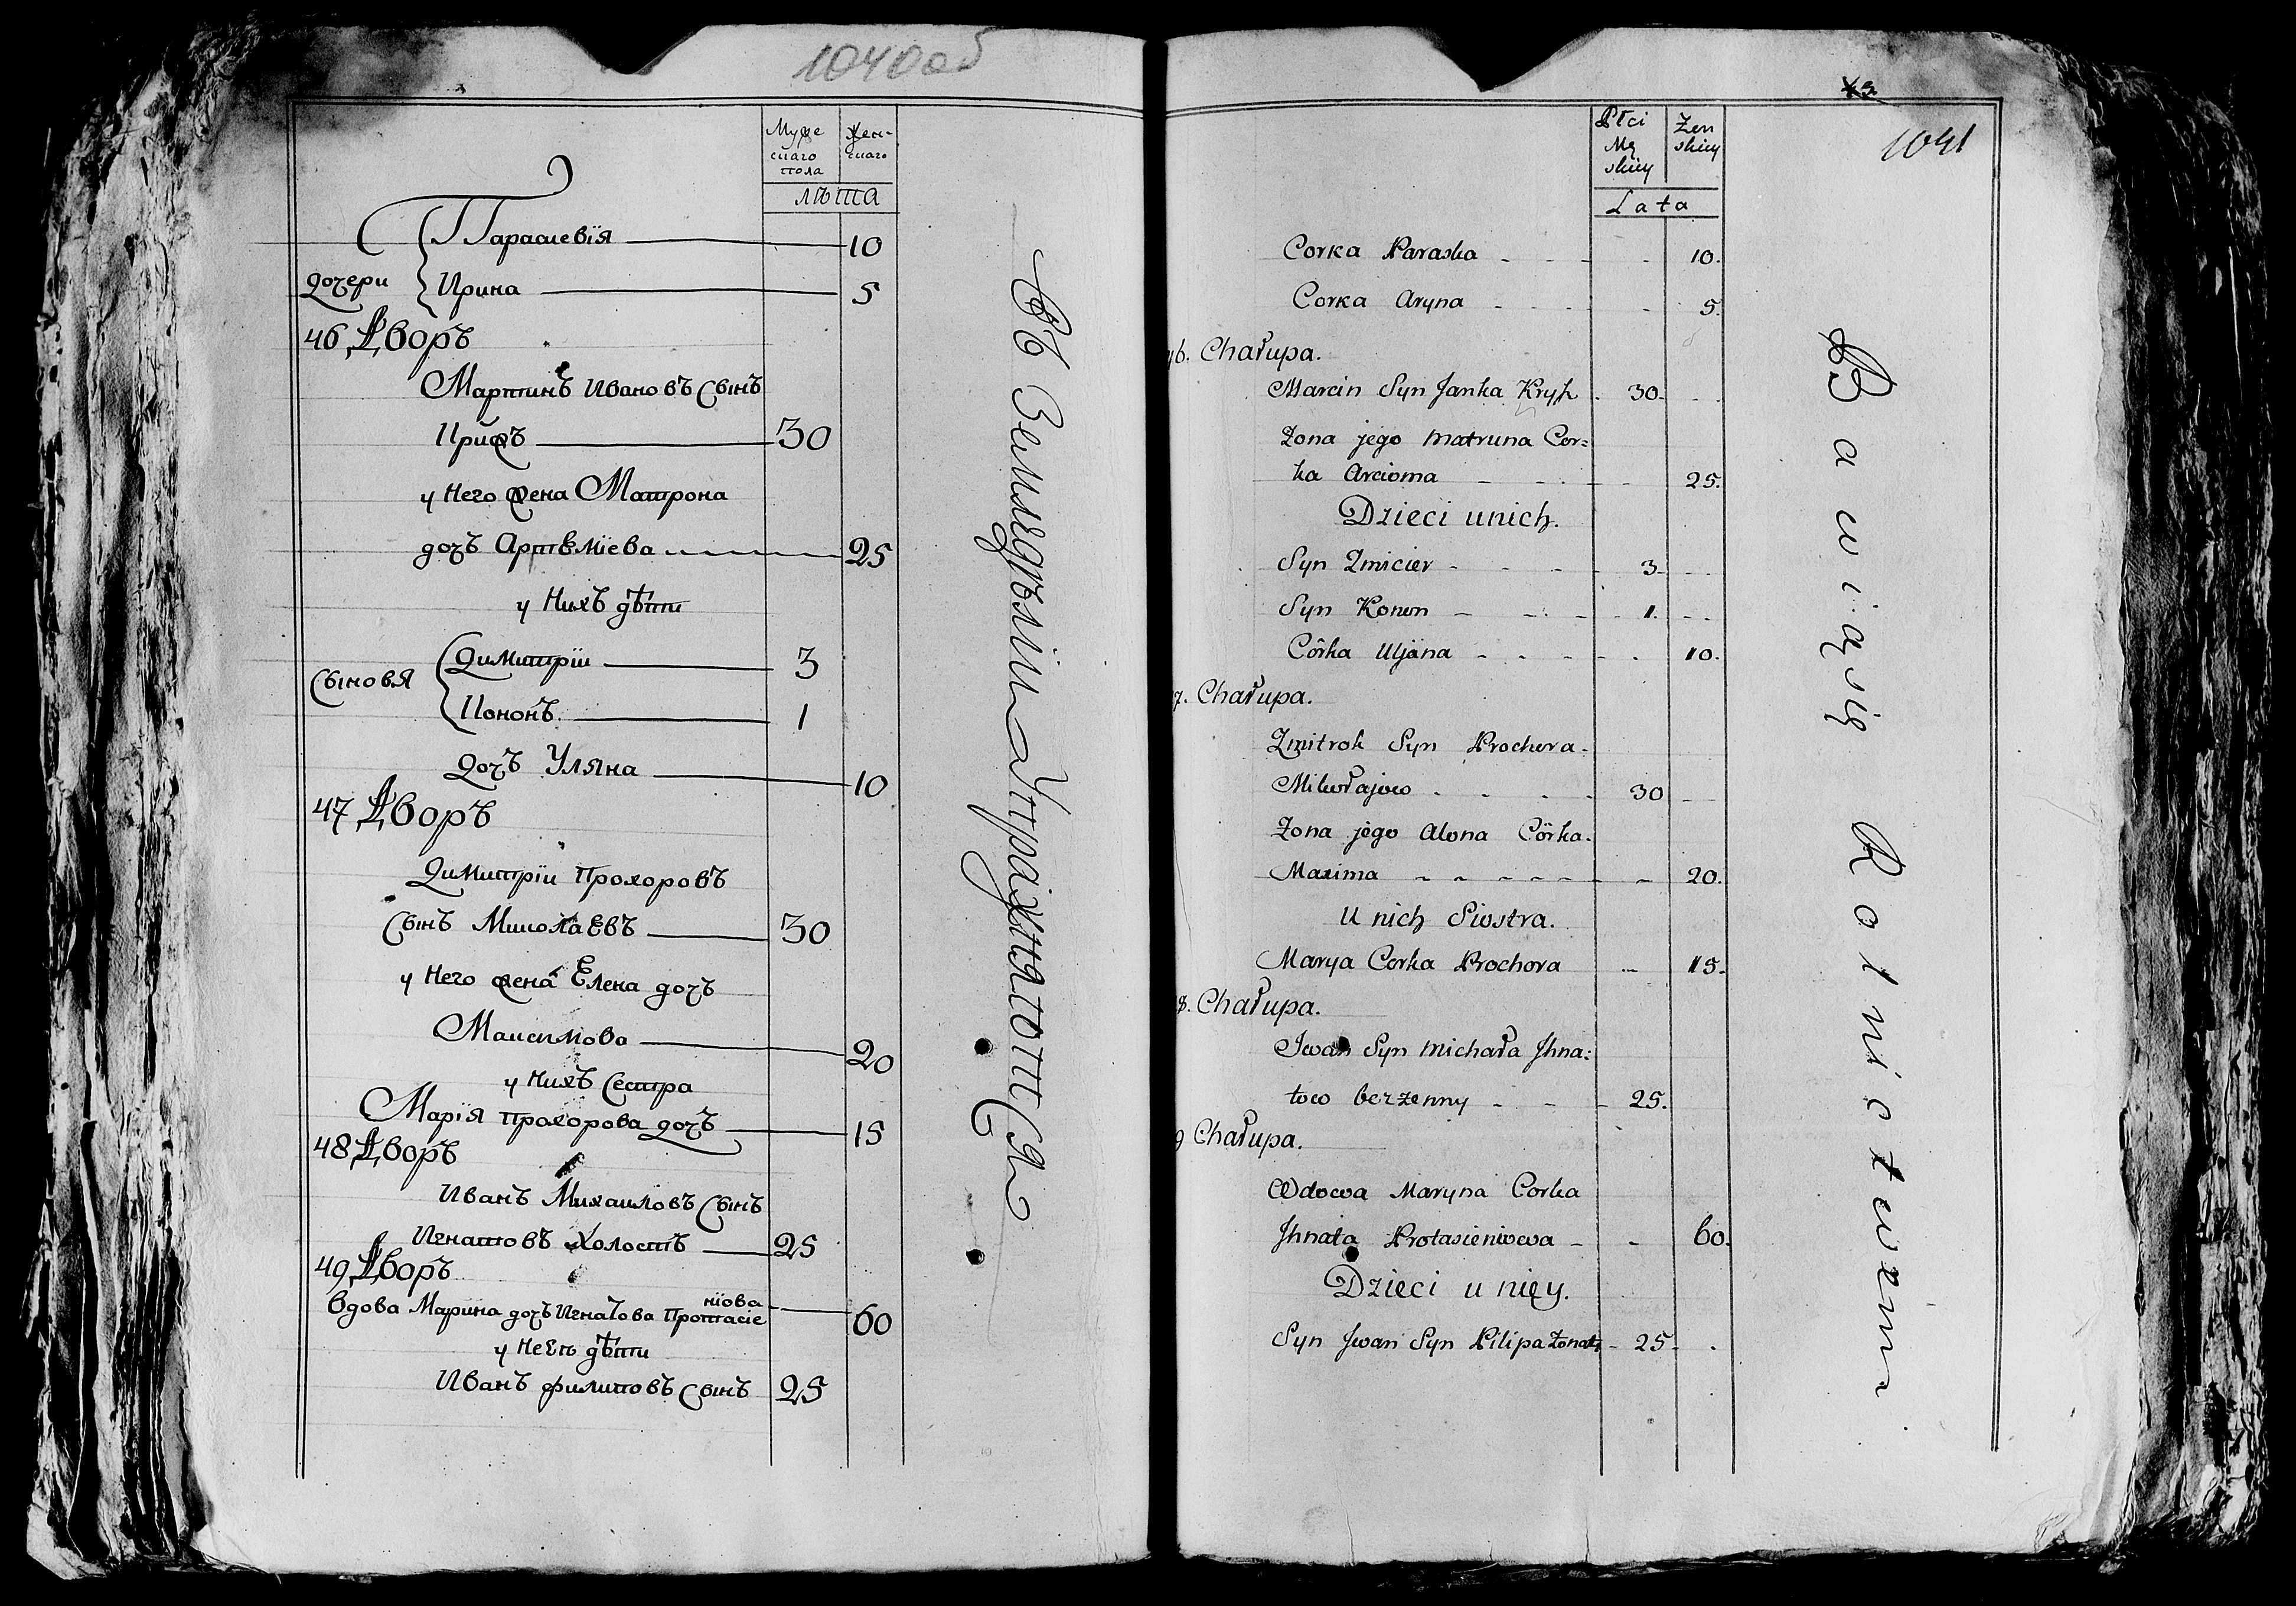 1040об
Муже
скаго
пола
Жен-
скаго
лѣта
Параскевїя 10
дочери Ирина 5
46 Дворъ
Мартинъ Ивановъ Сынъ
Крикъ 30
у Него жена Матрона
дочъ Артемїева 25
у Нихъ дѣти
Сыновя Димитрїи 3
Кононъ 1
дочъ Уляна 10
47 Дворъ
Димитрїи Прохоровъ
Сынъ Миколаевъ 30
у Него жена Елена дочъ
Максимова 20
у Нихъ Сестра
Марїя Прохорова дочъ 15
48 Дворъ
Иванъ Михаиловъ Сынъ
Игнатовъ Холостъ 25
49 Дворъ
Вдова Марина дочъ Игнатова Протасie
нїова 60
у Неѣ дѣти
Иванъ Филиповъ Сынъ 25
Въ Земледѣлїи Упражнаются
43
1041
Płci
Mę
skiey
Żen
skiey
Lata
Corka Paraska 10.
Corka Aryna 5.
46. Chałupa.
Marcin Syn Janka Kryk 30.
Żona jego Matruna Cor=
ka Arcioma 25.
Dzieci unich.
Syn Zmicier 3.
Syn Konon 1.
Côrka Uljana 10.
7. Chałupa.
Zmitrok Syn Prochora
Mikołajow 30
Żona jego Alona Côrka
Maxima 20.
U nich Siostra.
Marya Corka Prochora 15.
8. Chałupa.
Iwan Syn Michała Jhna=
tow bezżenny 25.
9 Chałupa.
Wdowa Maryna Corka
Jhnata Protasieniowa 60.
Dzieci u niey.
Syn Jwan Syn Pilipa Żonaty 25.
Bawiąsię Rolnictwem